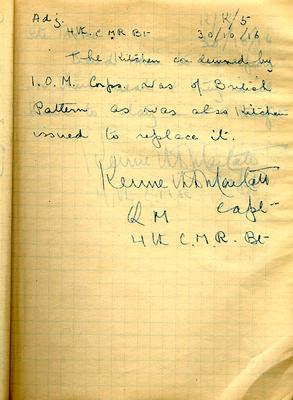 Adj. K/5
4th C.M.R. Bt 30/10/16
The Kitchen condemned by
I.O.M. Corps. was of British
Pattern as was also Kitchen
issued to replace it.
Capt
Q M
4th C.M.R. Bt